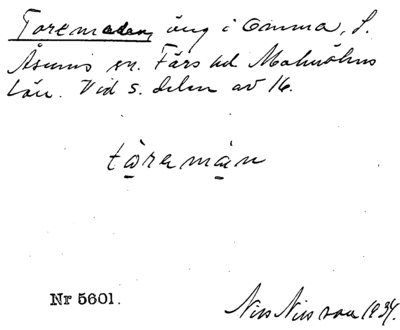 Toremaden, äng i Omma, S.
Åsums sn. Färs hd Malmöhus
län. Vid s. delen av 16.
tåremån
Nr 5601.
Nils Nilsson 1934.